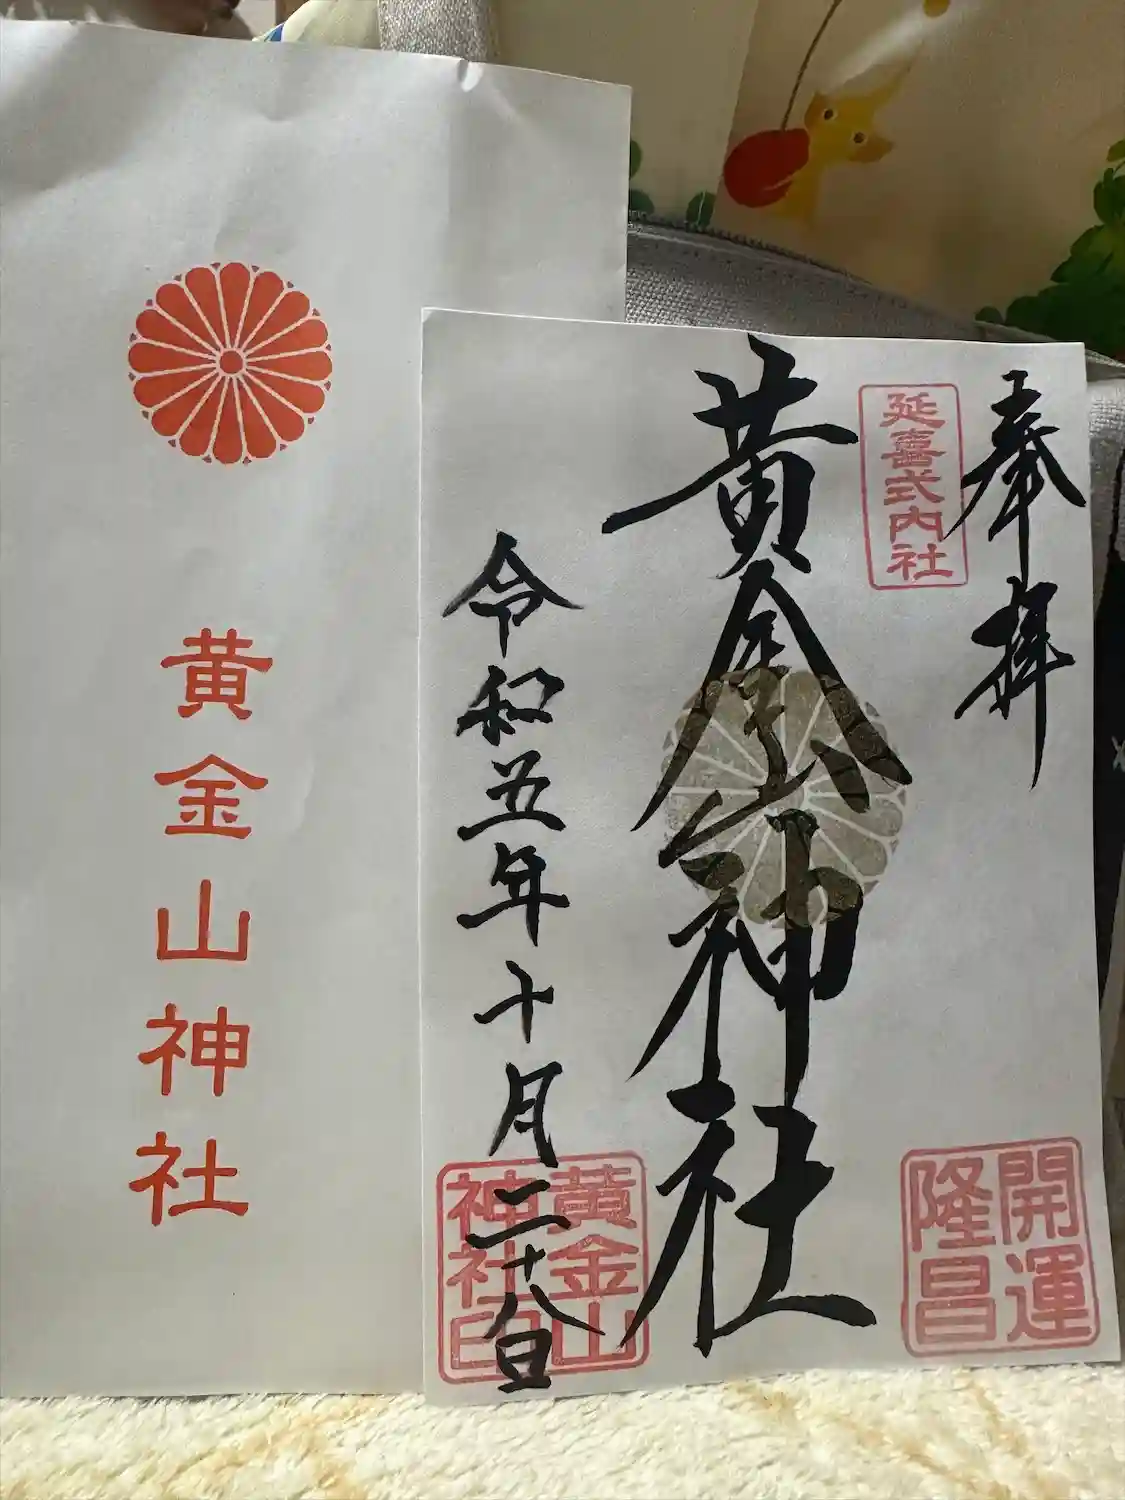 黄金山神社
奉拝
延喜式内社
開運
隆昌
黄金山神社
令和五年十月二十八日
黄金山
神社印